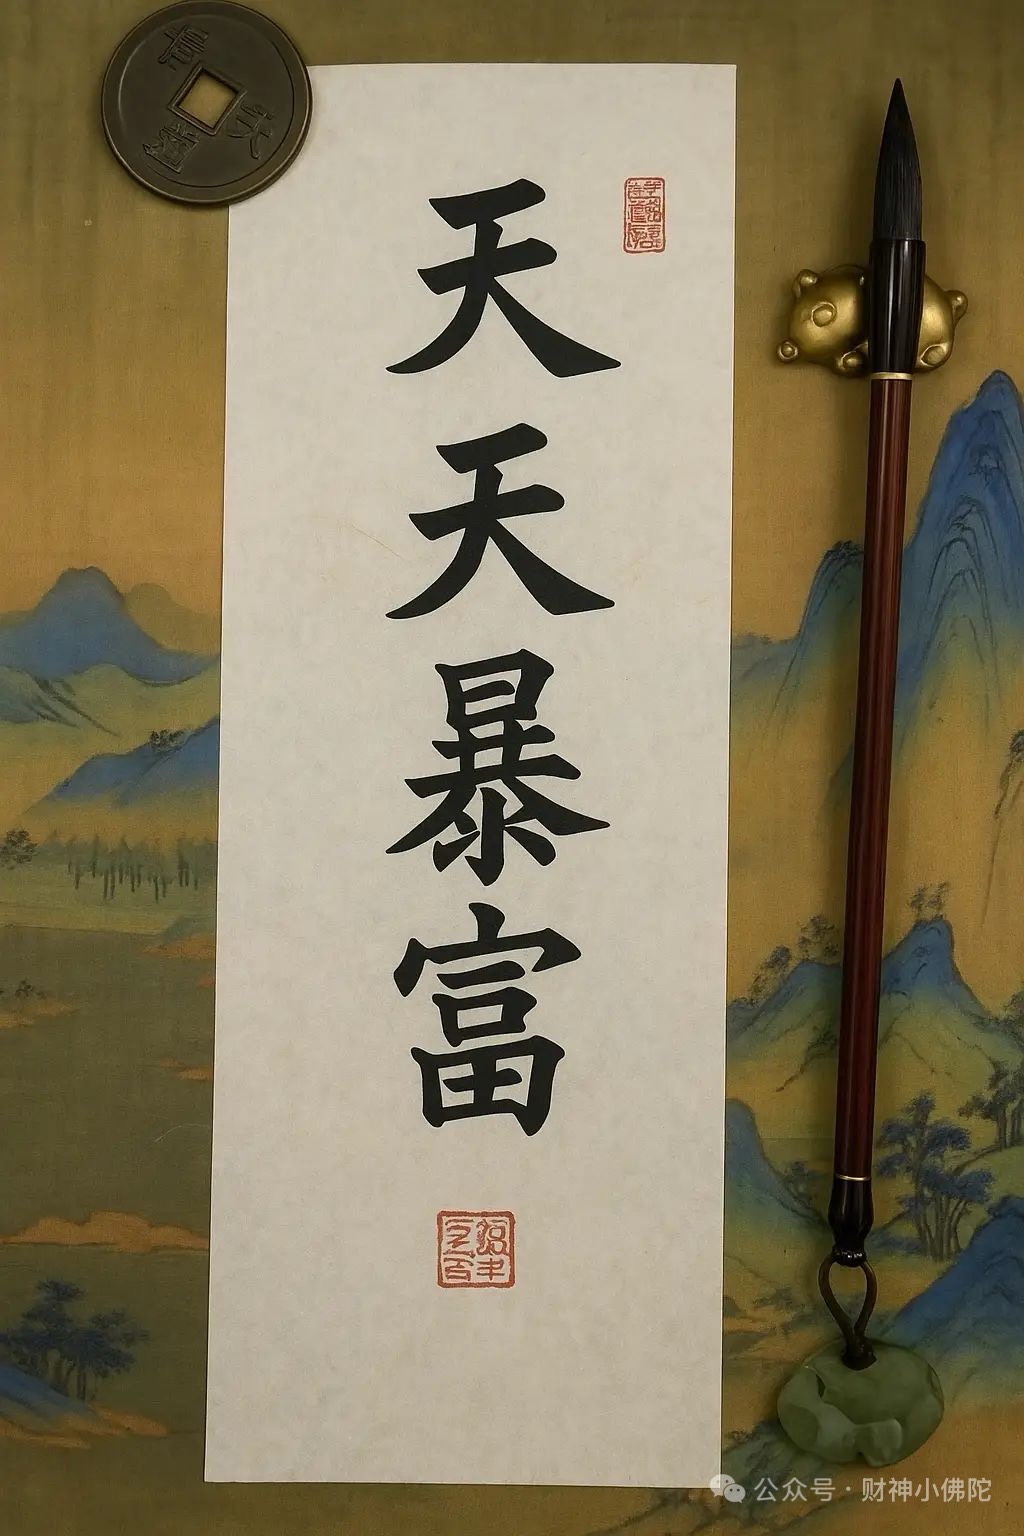 天天暴富
公众号·财神小佛陀